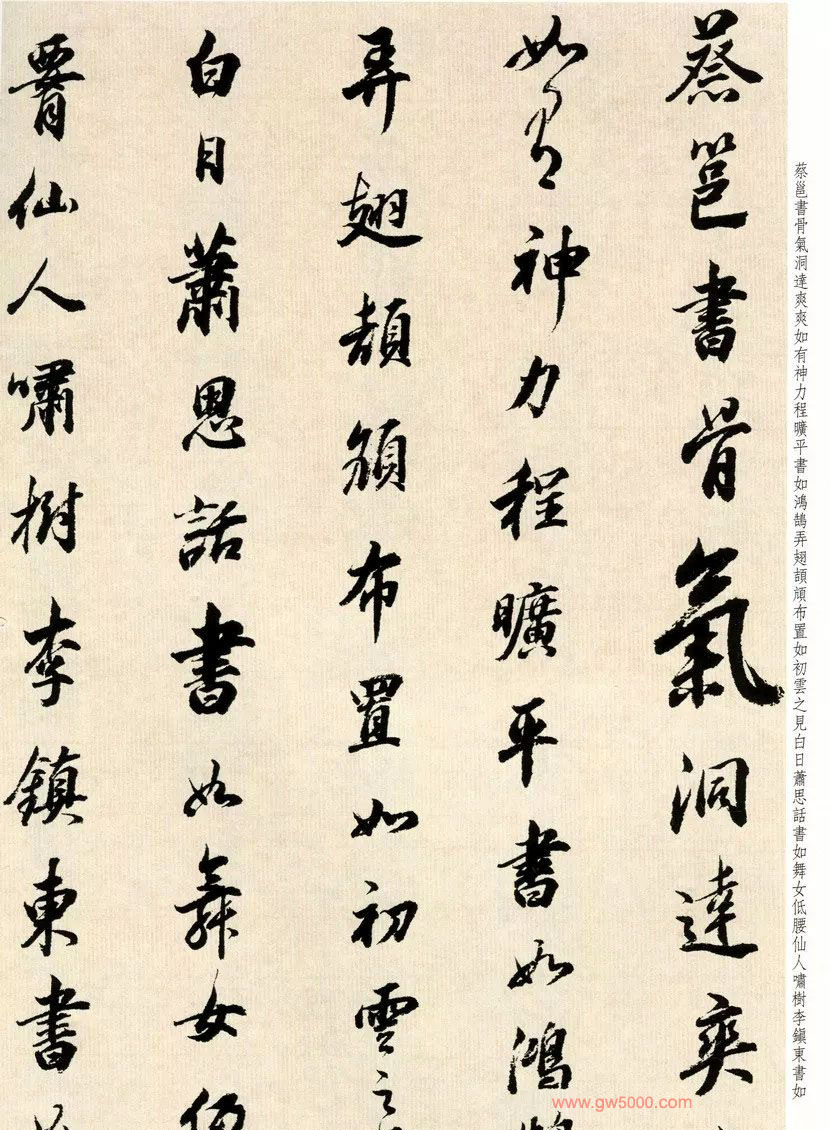 蔡邕書骨氣洞達爽爽如有神力程曠平書如鴻鵠弄翅頡頏布置如初雲之見白日蕭思話書如舞女低腰仙人嘯樹李鎮東書如
蔡邕書骨氣洞達爽
如有神力程曠平書如鴻鵠
弄翅頡頏布置如初雲之
白日蕭思話書如舞女低
腰仙人嘯樹李鎮東書
www.gw5000.com